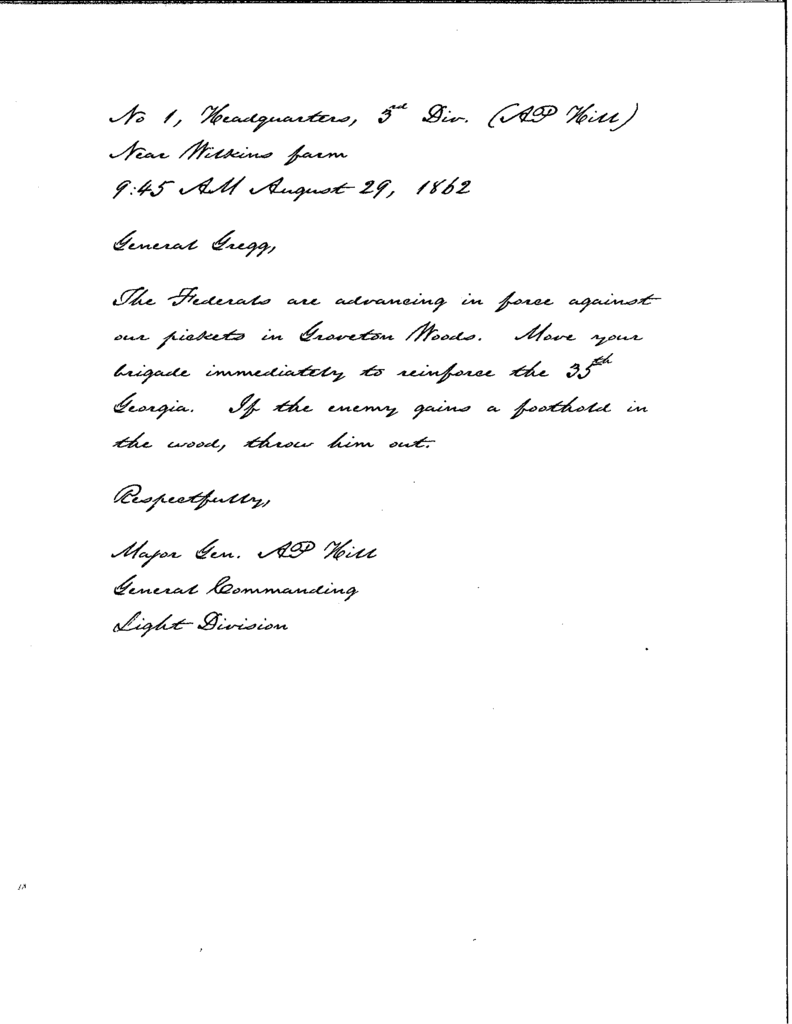 No 1, Headquarters, 3rd Div. (AP Hill)
Near Wilkins farm
9:45 AM August 29, 1862
General Gregg,
The Federals are advancing in force against
our pickets in Groveton Woods. Move your
brigade immediately to reinforce the 35th
Georgia. If the enemy gains a foothold in
the wood, throw him out.
Respectfully,
Major Gen. AP Hill
General Commanding
Light Division